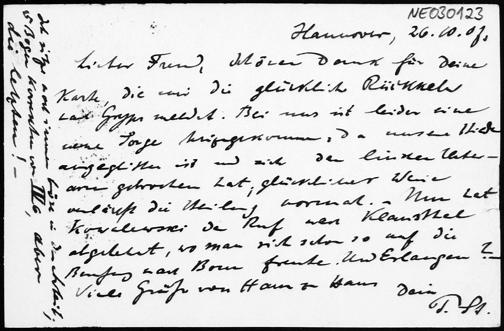 NE030123
Hannover, 26.10.07.
Lieber Freund, schönen Dank für Deine
Karte, die mir die glückliche Rückkehr
nach meldet. Bei uns ist leider eine
neue Sorge hinzugekommen, da unsere
ausgeglitten ist und sich den linken Unter-
arm gebrochen hat, glücklicher Weise
verläuft die Heilung normal. – Nun hat
Kowalewski den Ruf nach Klausthal
abgelehnt, wo man sich schon so auf die
Berufung nach Bonn freute. Und Erlangen?
Viele Grüße von Haus zu Haus
Dein
P. St.
Ich noch immer in der Arbeit,
6 Bogen Korrektur von III6, aber
die letzten! –